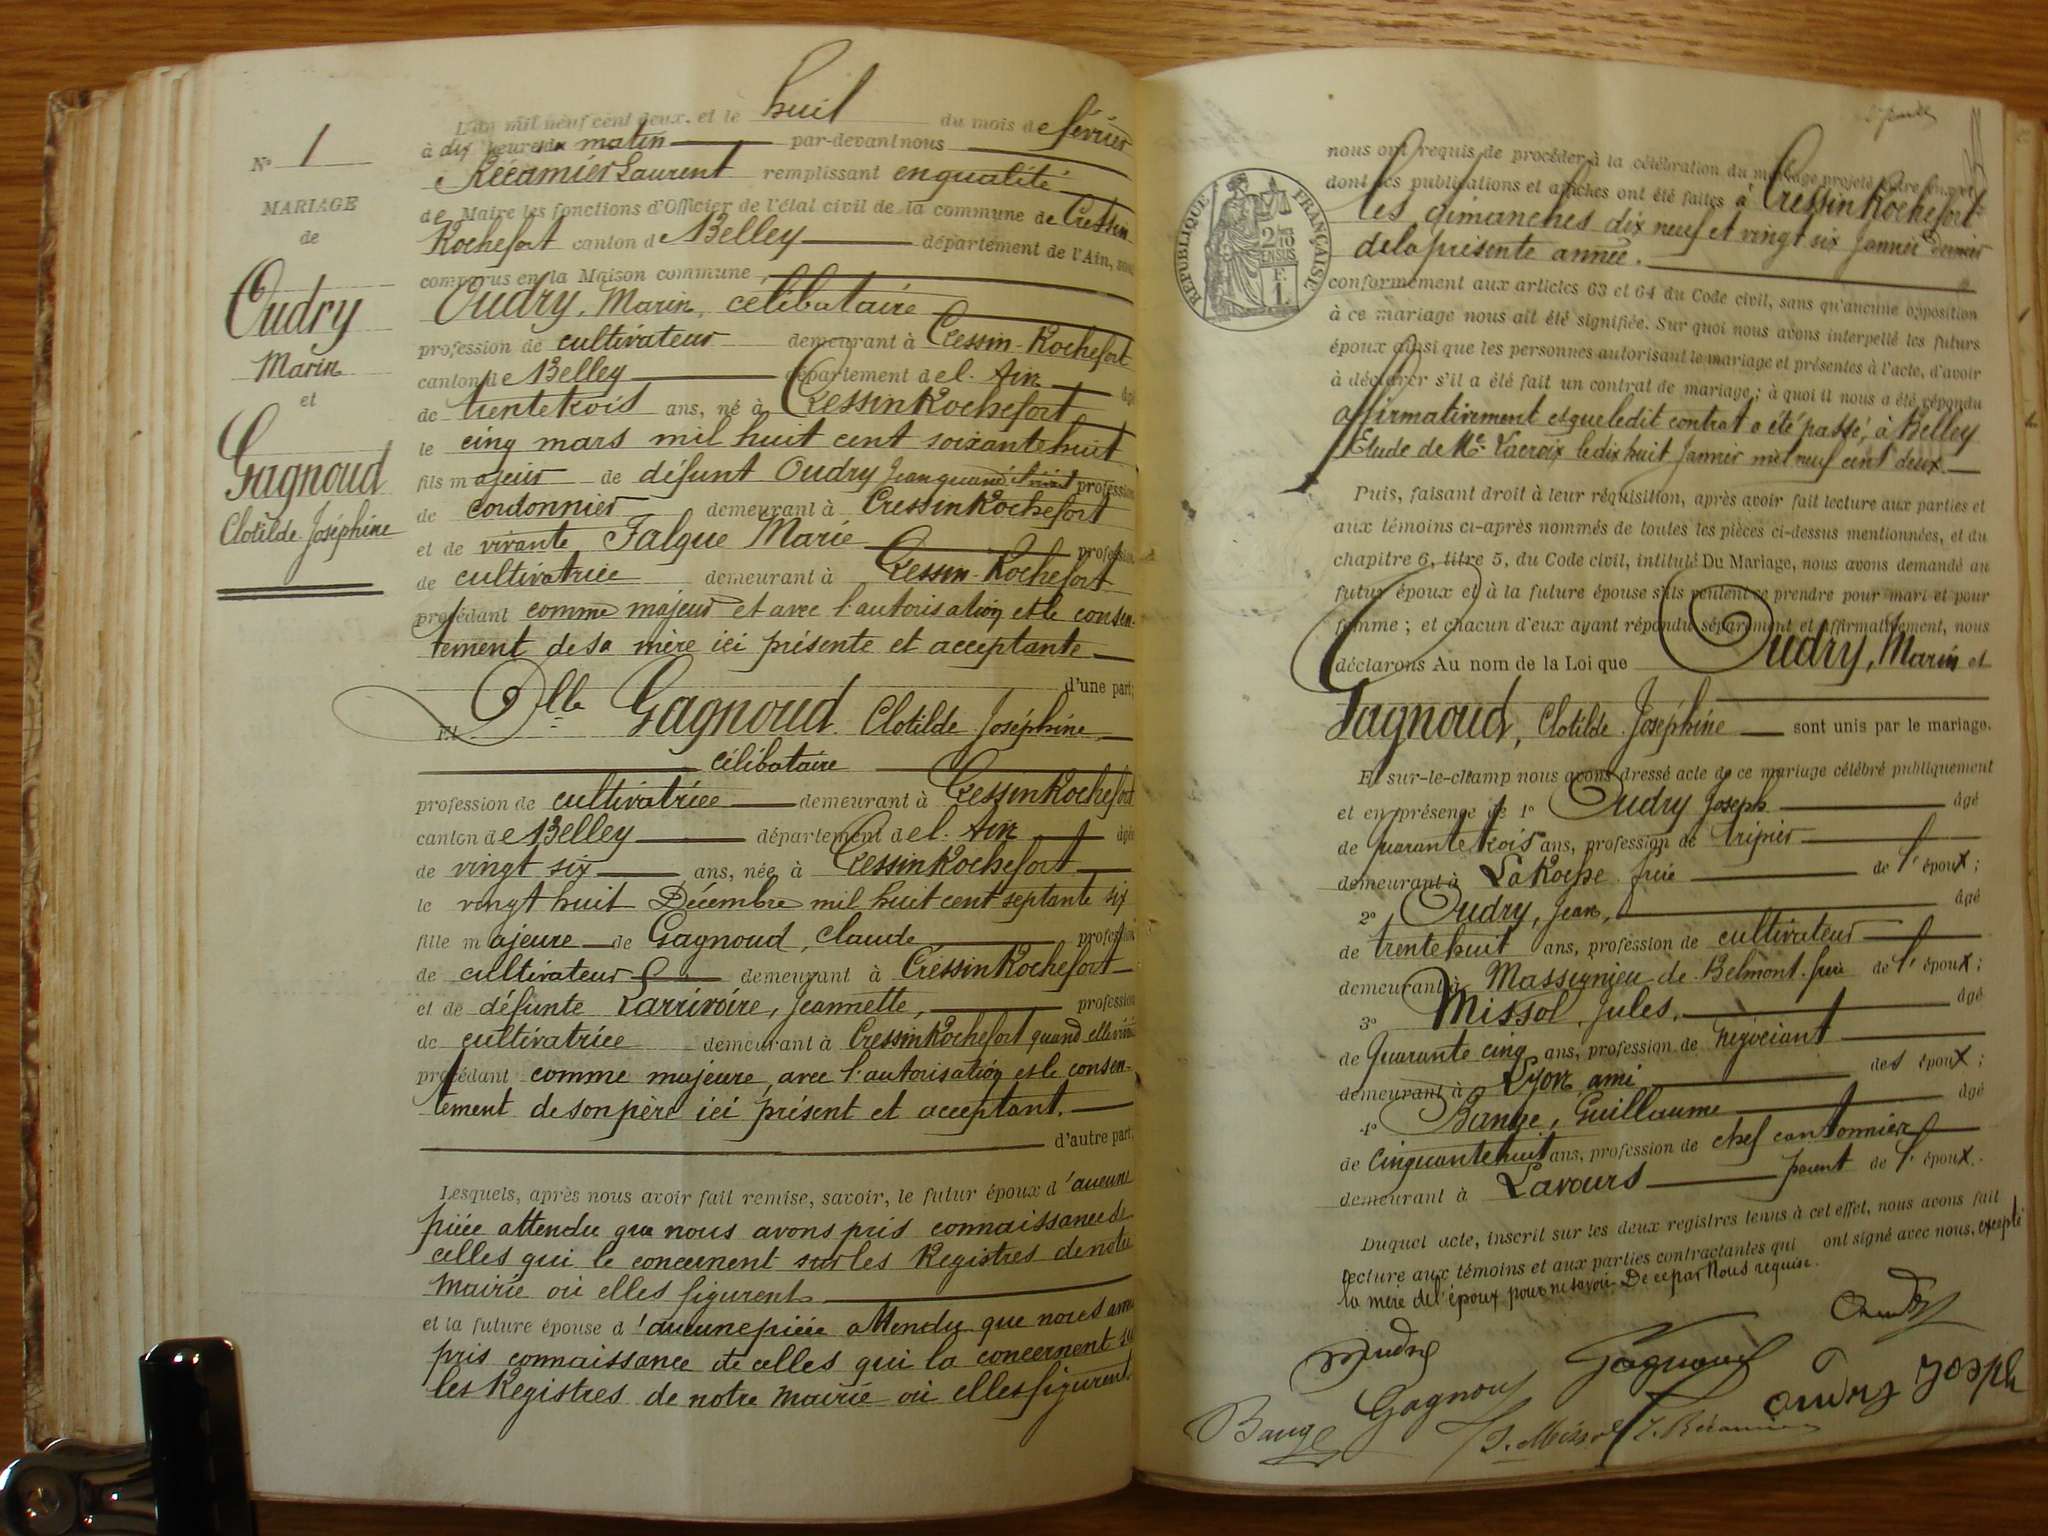 N° 1
MARIAGE
de
Oudry
Marin
et
Gagnoud
Clotilde Joséphine
L'an mil neuf cent deux, et le huit du mois de février
à dix heures du matin par-devant nous
Récamier Laurent remplissant en qualité
de Maire les fonctions d'Officier de l'état civil de la commune de Cressin
Rochefort canton de Belley département de l'Ain, sont
comparus en la Maison commune,
Oudry, Marin, célibataire
profession de cultivateur demeurant à Cressin-Rochefort
canton de Belley département de l'Ain âgé
de trente trois ans, né à Cressin Rochefort
le cinq mars mil huit cent soixante huit
fils majeur de défunt Oudry Jean quand il vivait profession
de cordonnier demeurant à Cressin Rochefort
et de vivante Falque Marie profession
de cultivatrice demeurant à Cressin-Rochefort
procédant comme majeur et avec l'autorisation et le consen-
tement de sa mère ici présente et acceptante
d'une part;
Et Dlle Gagnoud Clotilde Joséphine
célibataire
profession de cultivatrice demeurant à Cressin Rochefort
canton de Belley département de l'Ain âgée
de vingt six ans, née à Cressin Rochefort
le vingt huit Décembre mil huit cent septante six
fille majeure de Gagnoud, Claude profession
de cultivateur demeurant à Cressin Rochefort
et de défunte Larrivoire, Jeannette, profession
de cultivatrice demeurant à Cressin Rochefort quand elle vivait
procédant comme majeure, avec l'autorisation et le consen-
tement de son père ici présent et acceptant.
d'autre part;
Lesquels, après nous avoir fait remise, savoir, le futur époux d'aucune
pièce attendu que nous avons pris connaissance de
celles qui le concernent sur les Registres de notre
Mairie où elles figurent
et la future épouse d'aucune pièce attendu que nous avons
pris connaissance de celles qui la concernent sur
les Registres de notre Mairie où elles figurent.
RÉPUBLIQUE FRANÇAISE
2/10 EN SUS
F.
1.
nous ont requis de procéder à la célébration du mariage projeté entre eux et
dont les publications et affiches ont été faites à Cressin Rochefort
les dimanches dix neuf et vingt six Janvier dernier
de la présente année.
conformément aux articles 63 et 64 du Code civil, sans qu'aucune opposition
à ce mariage nous ait été signifiée. Sur quoi nous avons interpellé les futurs
époux ainsi que les personnes autorisant le mariage et présentes à l'acte, d'avoir
à déclarer s'il a été fait un contrat de mariage; à quoi il nous a été répondu
affirmativement et que ledit contrat a été passé, à Belley
Etude de Me Lacroix le dix huit Janvier mil neuf cent deux.
Puis, faisant droit à leur réquisition, après avoir fait lecture aux parties et
aux témoins ci-après nommés de toutes les pièces ci-dessus mentionnées, et du
chapitre 6, titre 5, du Code civil, intitulé Du Mariage, nous avons demandé au
futur époux et à la future épouse s'ils veulent se prendre pour mari et pour
femme; et chacun d'eux ayant répondu séparément et affirmativement, nous
déclarons Au nom de la Loi que Oudry, Marin et
Gagnoud, Clotilde Joséphine sont unis par le mariage.
Et sur-le-champ nous avons dressé acte de ce mariage célébré publiquement
et en présence de 1° Oudry Joseph âgé
de quarante trois ans, profession de tripier
demeurant à La Roche frère de l'époux;
2° Oudry, Jean, âgé
de trente huit ans, profession de cultivateur
demeurant à Massignieu-de-Belmont frère de l'époux;
3° Missol, Jules, âgé
de Quarante cinq ans, profession de Négociant
demeurant à Lyon ami des époux;
4° Bange, Guillaume âgé
de cinquante huit ans, profession de chef cantonnier
demeurant à Lavours parent de l'époux.
Duquel acte, inscrit sur les deux registres tenus à cet effet, nous avons fait
lecture aux témoins et aux parties contractantes qui ont signé avec nous, excepté
la mère de l'époux pour ne savoir. De ce par Nous requise.
Oudry
Gagnoud
Gagnoud
Oudry Joseph
Bange
J. Missol
L. Récamier